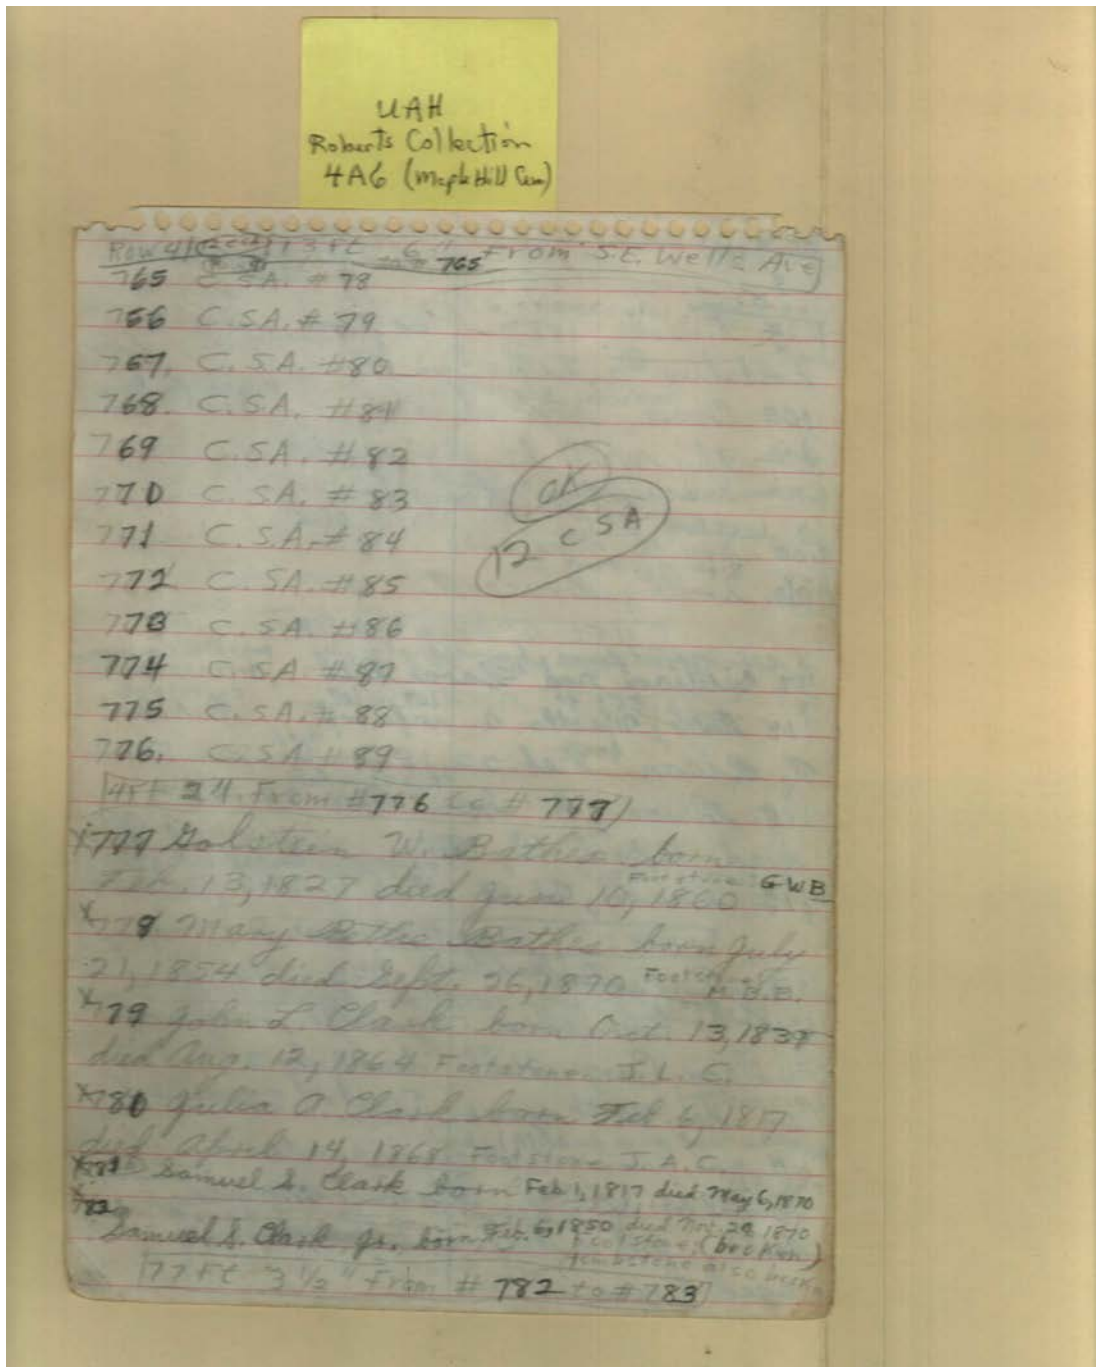 UAH
Roberts Collection
4A6 (Maple Hill Cem)
Row 41 13 Ft 6" to # 765 From S.E. Wells Ave
765 C.S.A. # 78
766 C.S.A. # 79
767. C.S.A. #80
768. C.S.A. #81
769 C.S.A. #82
770 C.S.A. # 83
771 C.S.A. # 84
772 C.S.A. # 85
773 C.S.A. #86
774 C.S.A. # 87
775 C.S.A. # 88
776. C.S.A # 89
OK
12 C S A
4Ft 2" From #776 to # 777
x777 W. born
Feb. 13, 1827 died June 10, 1860 Footstone GWB
x778 Mary born July
21, 1854 died Sept. 26, 1870 Footstone M.B.B.
x779 John L. Clark born Oct. 13, 1837
died Aug. 12, 1864 Footstone J.L.C.
x780 Julia A Clark born Feb 6, 1817
died April 14, 1868 Footstone J.A.C.
x781 Samuel S. Clark born Feb 1, 1817 died May 6, 1870
x782
Samuel S. Clark Jr. born Feb. 6, 1850 died Nov. 29 1870
Footstone (broken)
tombstone also
77 Ft 3 1/2" From # 782 to # 783